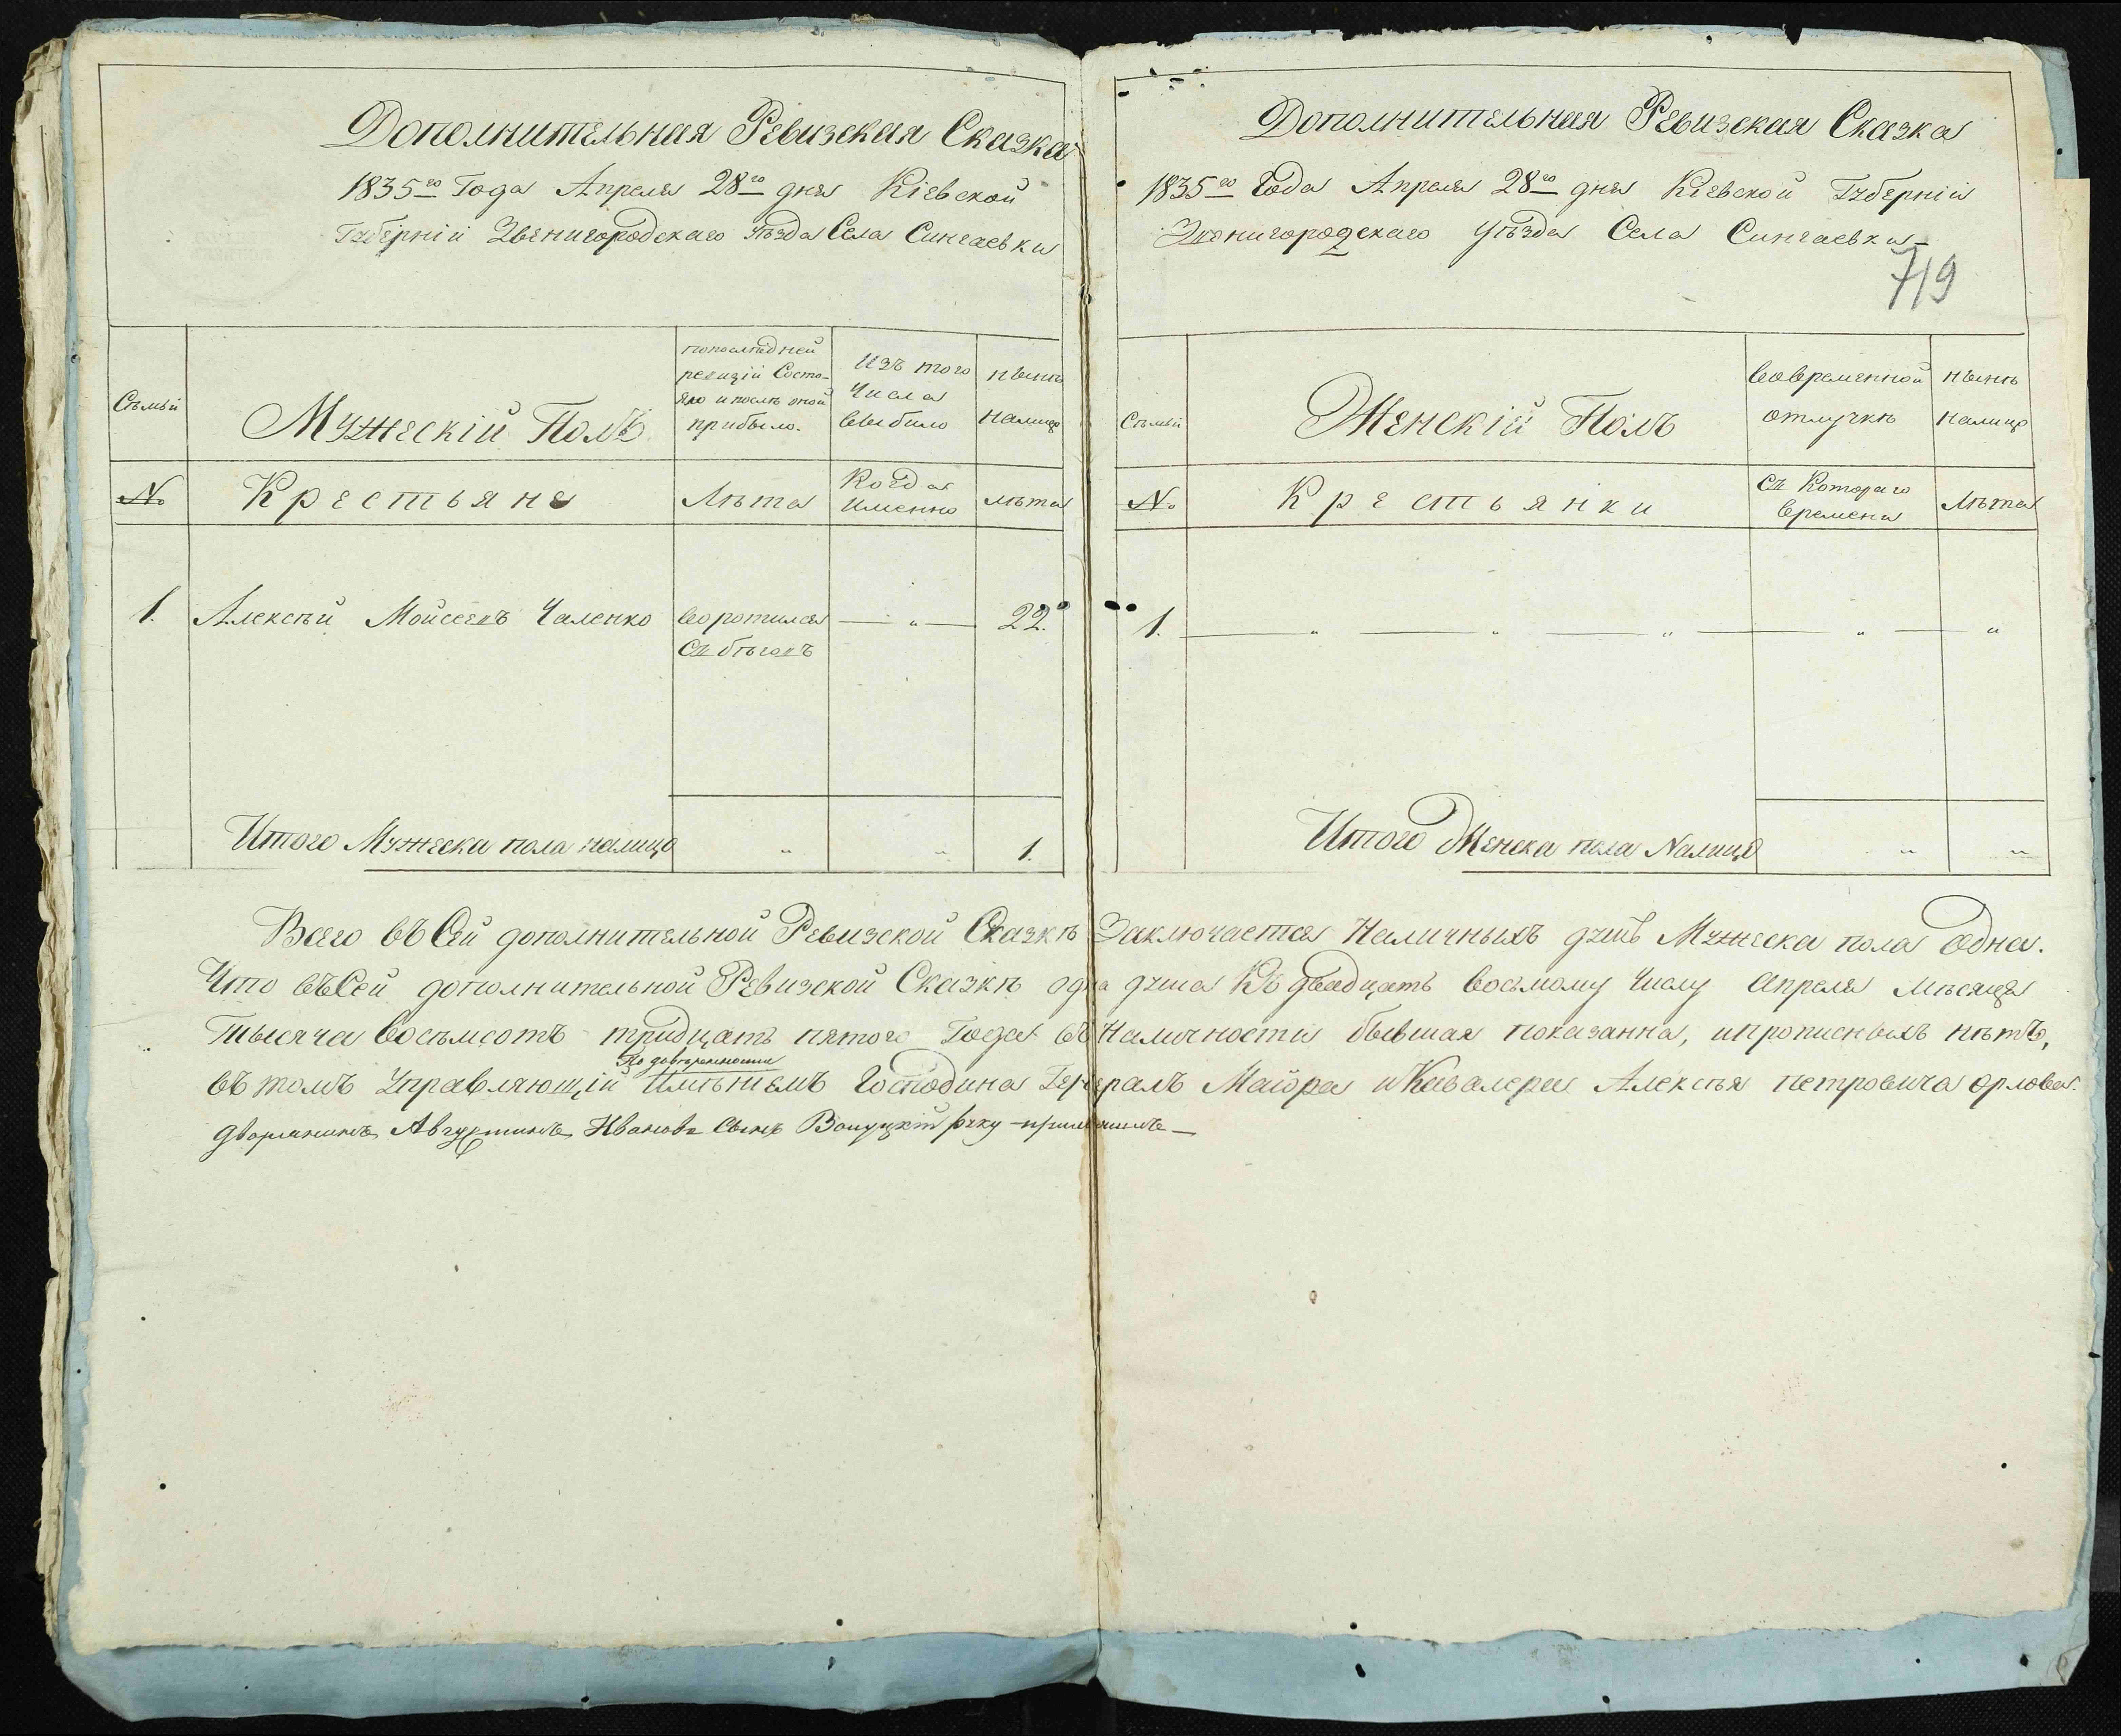 Дополнительная Ревизская Сказка
1835го Года Апреля 28го дня Кіевской
Губерніи Звенигородскаго Уѣзда Села Сингаевки
Семьи
Мужескій Полъ
попослѣдней
ревизіи Состо-
яло и послѣ оной
прибыло.
Изъ того
Числа
выбыло
нынѣ
налицо
№
Крестьяне
Лѣта
Когда
Именно
лѣта
1.
Алексѣй Мойсеевъ Чаленко
воротился
Съ бѣговъ
— „ —
22.
Итого Мужеска пола налицо
„
„
1.
Дополнительная Ревизская Сказка
1835го Года Апреля 28го дня Кіевской Губерніи
Звенигородскаго Уѣзда Села Сингаевки
719
Семьи
Женскій Полъ
вовременной
отлучкѣ
нынѣ
налицо
№
Крестьянки
Съ Котораго
времени
Лѣта
1.
— „ — „ — „ — „ — „
Итого Женска пола Налицо
„
„
Всего въ Сей дополнительной Ревизской Сказкѣ Заключается Наличныхъ душъ Мужеска пола Одна.
Что въ Сей дополнительной Ревизской Сказкѣ одна душа Къ двадцать восьмому Числу Апреля Мѣсяца
Тысяча восемьсотъ тридцать пятого Года въ Наличности бывшая показанна, ипрописныхъ нѣтъ,
По довѣренности
въ томъ Управляющій Имѣніемъ Господина Генералъ Маіора и Кавалера Алексѣя петровича орлова.
дворянинъ Августинъ Ивановъ Сынъ руку приложилъ —